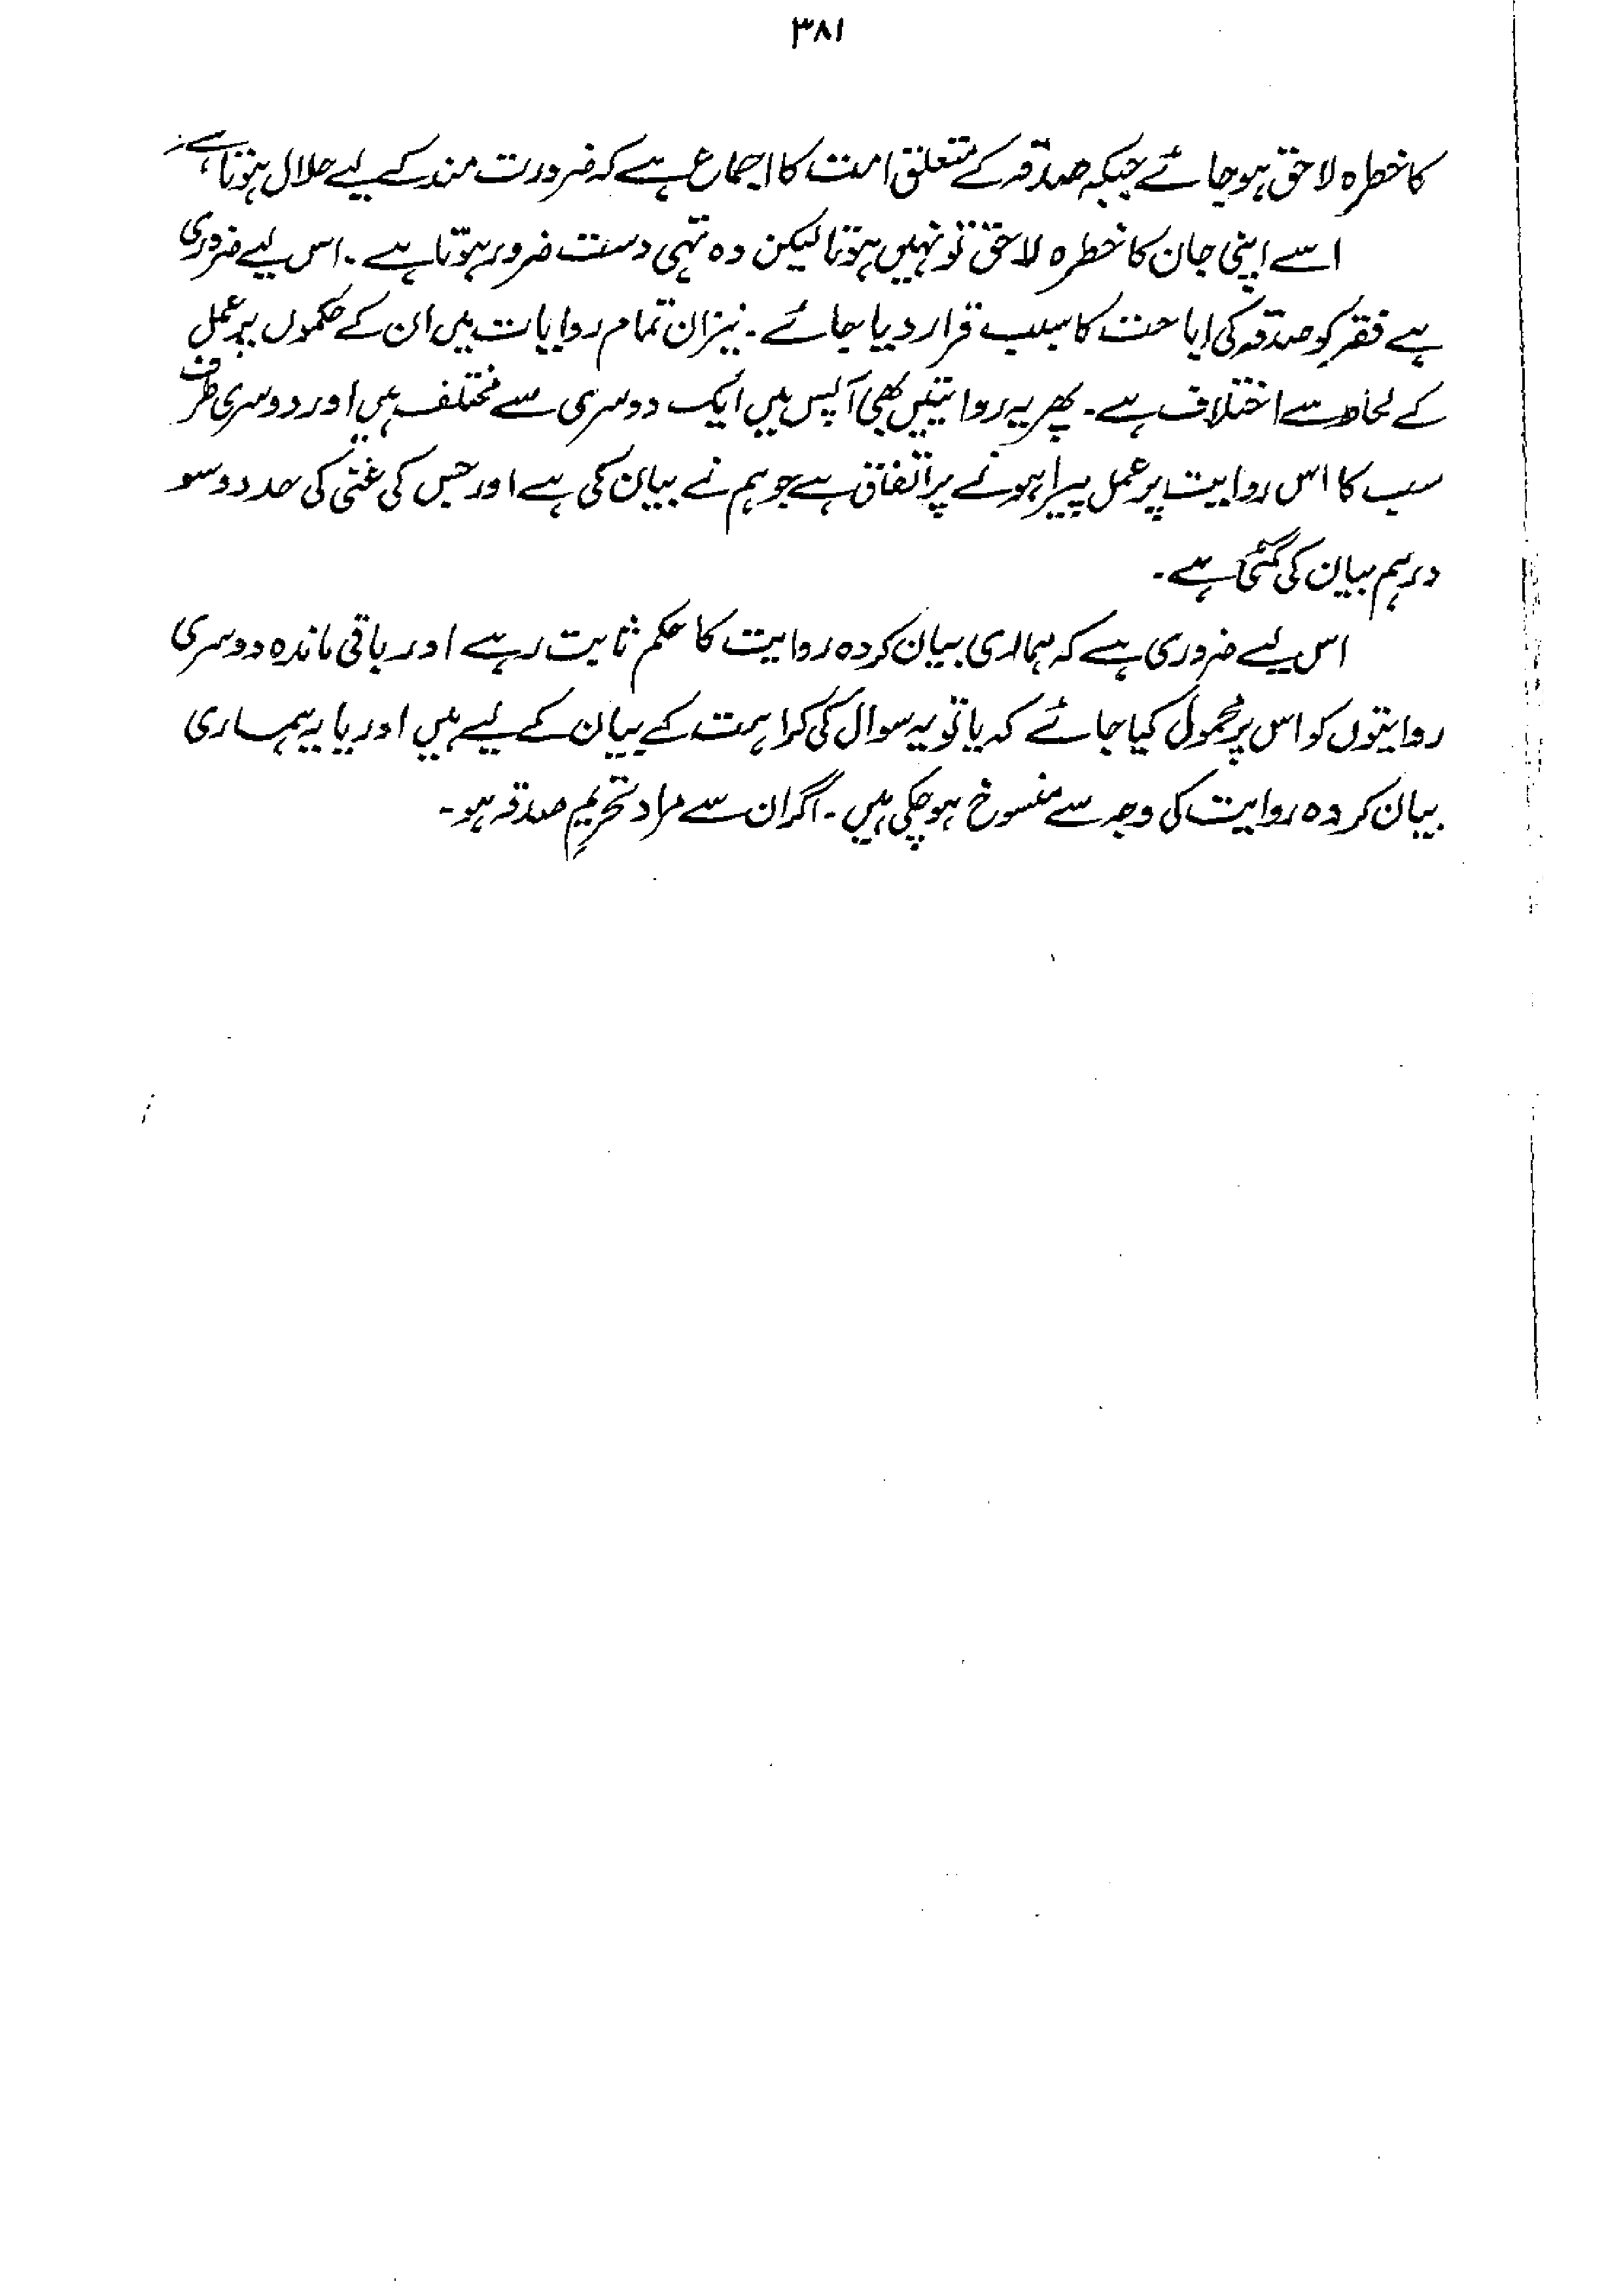 ۳۸۱
کا خطرہ لاحق ہو جائے جبکہ صدقہ کے متعلق امت کا اجماع ہے کہ ضرورت مند کے لیے حلال ہوتا ہے،
اسے اپنی جان کا خطرہ لاحق تو نہیں ہوتا لیکن وہ تہی دست ضرور ہوتا ہے۔ اس لیے ضروری
ہے فقر کو صدقہ کی اباحت کا سبب قرار دیا جائے۔ نیز ان تمام روایات میں ان کے حکموں پر عمل
کے لحاظ سے اختلاف ہے۔ پھر یہ روایتیں بھی آپس میں ایک دوسری سے مختلف ہیں اور دوسری طرف
سب کا اس روایت پر عمل پیرا ہونے پر اتفاق ہے جو ہم نے بیان کی ہے اور جس کی غنی کی حد دو سو
درہم بیان کی گئی ہے۔
اس لیے ضروری ہے کہ ہماری بیان کردہ روایت کا حکم ثابت رہے اور باقی ماندہ دوسری
روایتوں کو اس پر محمول کیا جائے کہ یا تو یہ سوال کی کراہت کے بیان کے لیے ہیں اور یا یہ ہماری
بیان کردہ روایت کی وجہ سے منسوخ ہو چکی ہیں۔ اگر ان سے مراد تحریمِ صدقہ ہو۔